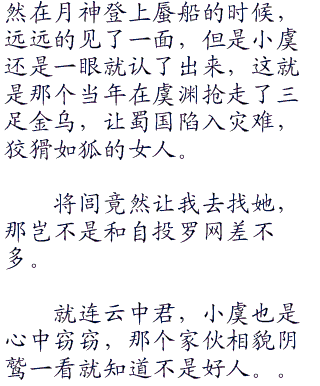 然在月神登上蜃船的时候，
远远的见了一面，但是小虞
还是一眼就认了出来，这就
是那个当年在虞渊抢走了三
足金乌，让蜀国陷入灾难，
狡猾如狐的女人。
将闾竟然让我去找她，
那岂不是和自投罗网差不
多。
就连云中君，小虞也是
心中窃窃，那个家伙相貌阴
鹫一看就知道不是好人。。